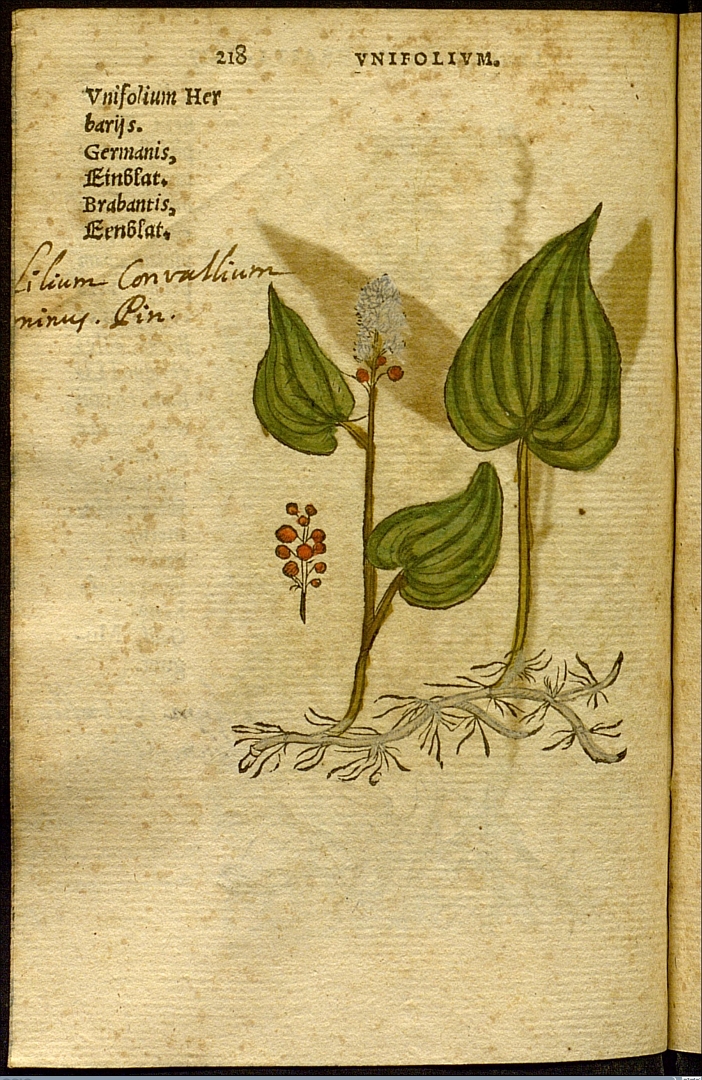 218 VNIFOLIVM.
Vnifolium Her
barijs.
Germanis,
Einblat.
Brabantis,
Eenblat.
Lilium Convallium
minus. Pin.